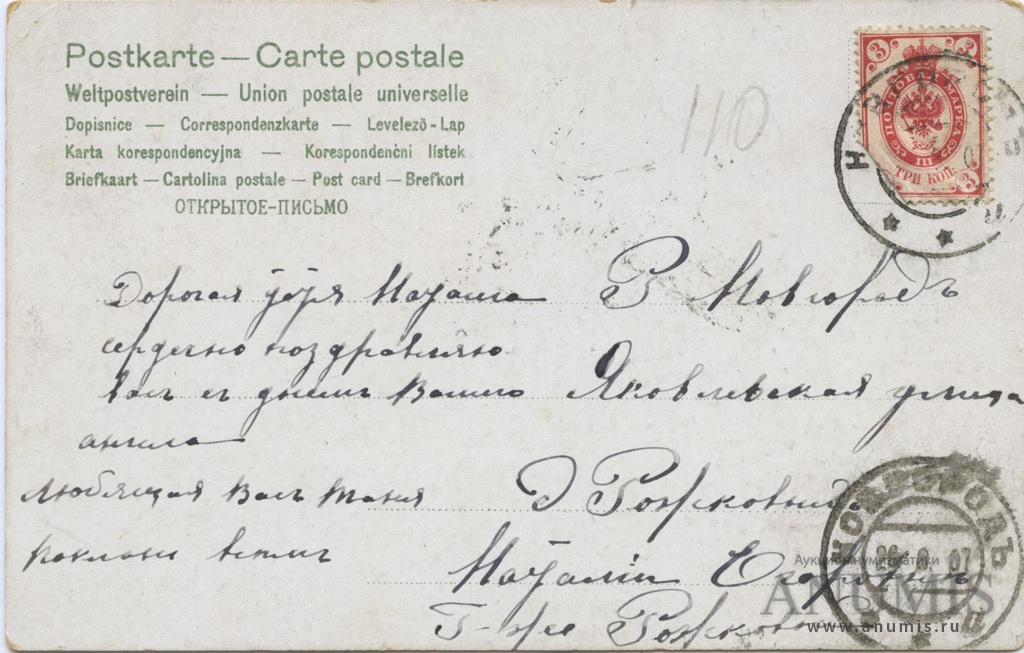 Postkarte — Carte postale
Weltpostverein — Union postale universelle
Dopisnice — Correspondenzkarte — Levelező-Lap
Karta korespondencyjna — Korespondenčni listek
Briefkaart — Cartolina postale — Post card — Brefkort
ОТКРЫТОЕ-ПИСЬМО
110
3 3
ПОЧТОВАЯ МАРКА
III
ТРИ КОП.
3 3
Дорогая тетя Наташа
сердечно поздравляю
вас съ днемъ Вашего
ангела
Любящая Васъ Таня
поклонъ всемъ
В Новгородъ
Яковлевская улица
Д Рожковный
Наталіи Егоровнѣ
Г-же Рожков
НОВГОРОДЪ
07
Аукцион нумизматики
ANUMIS
www.anumis.ru